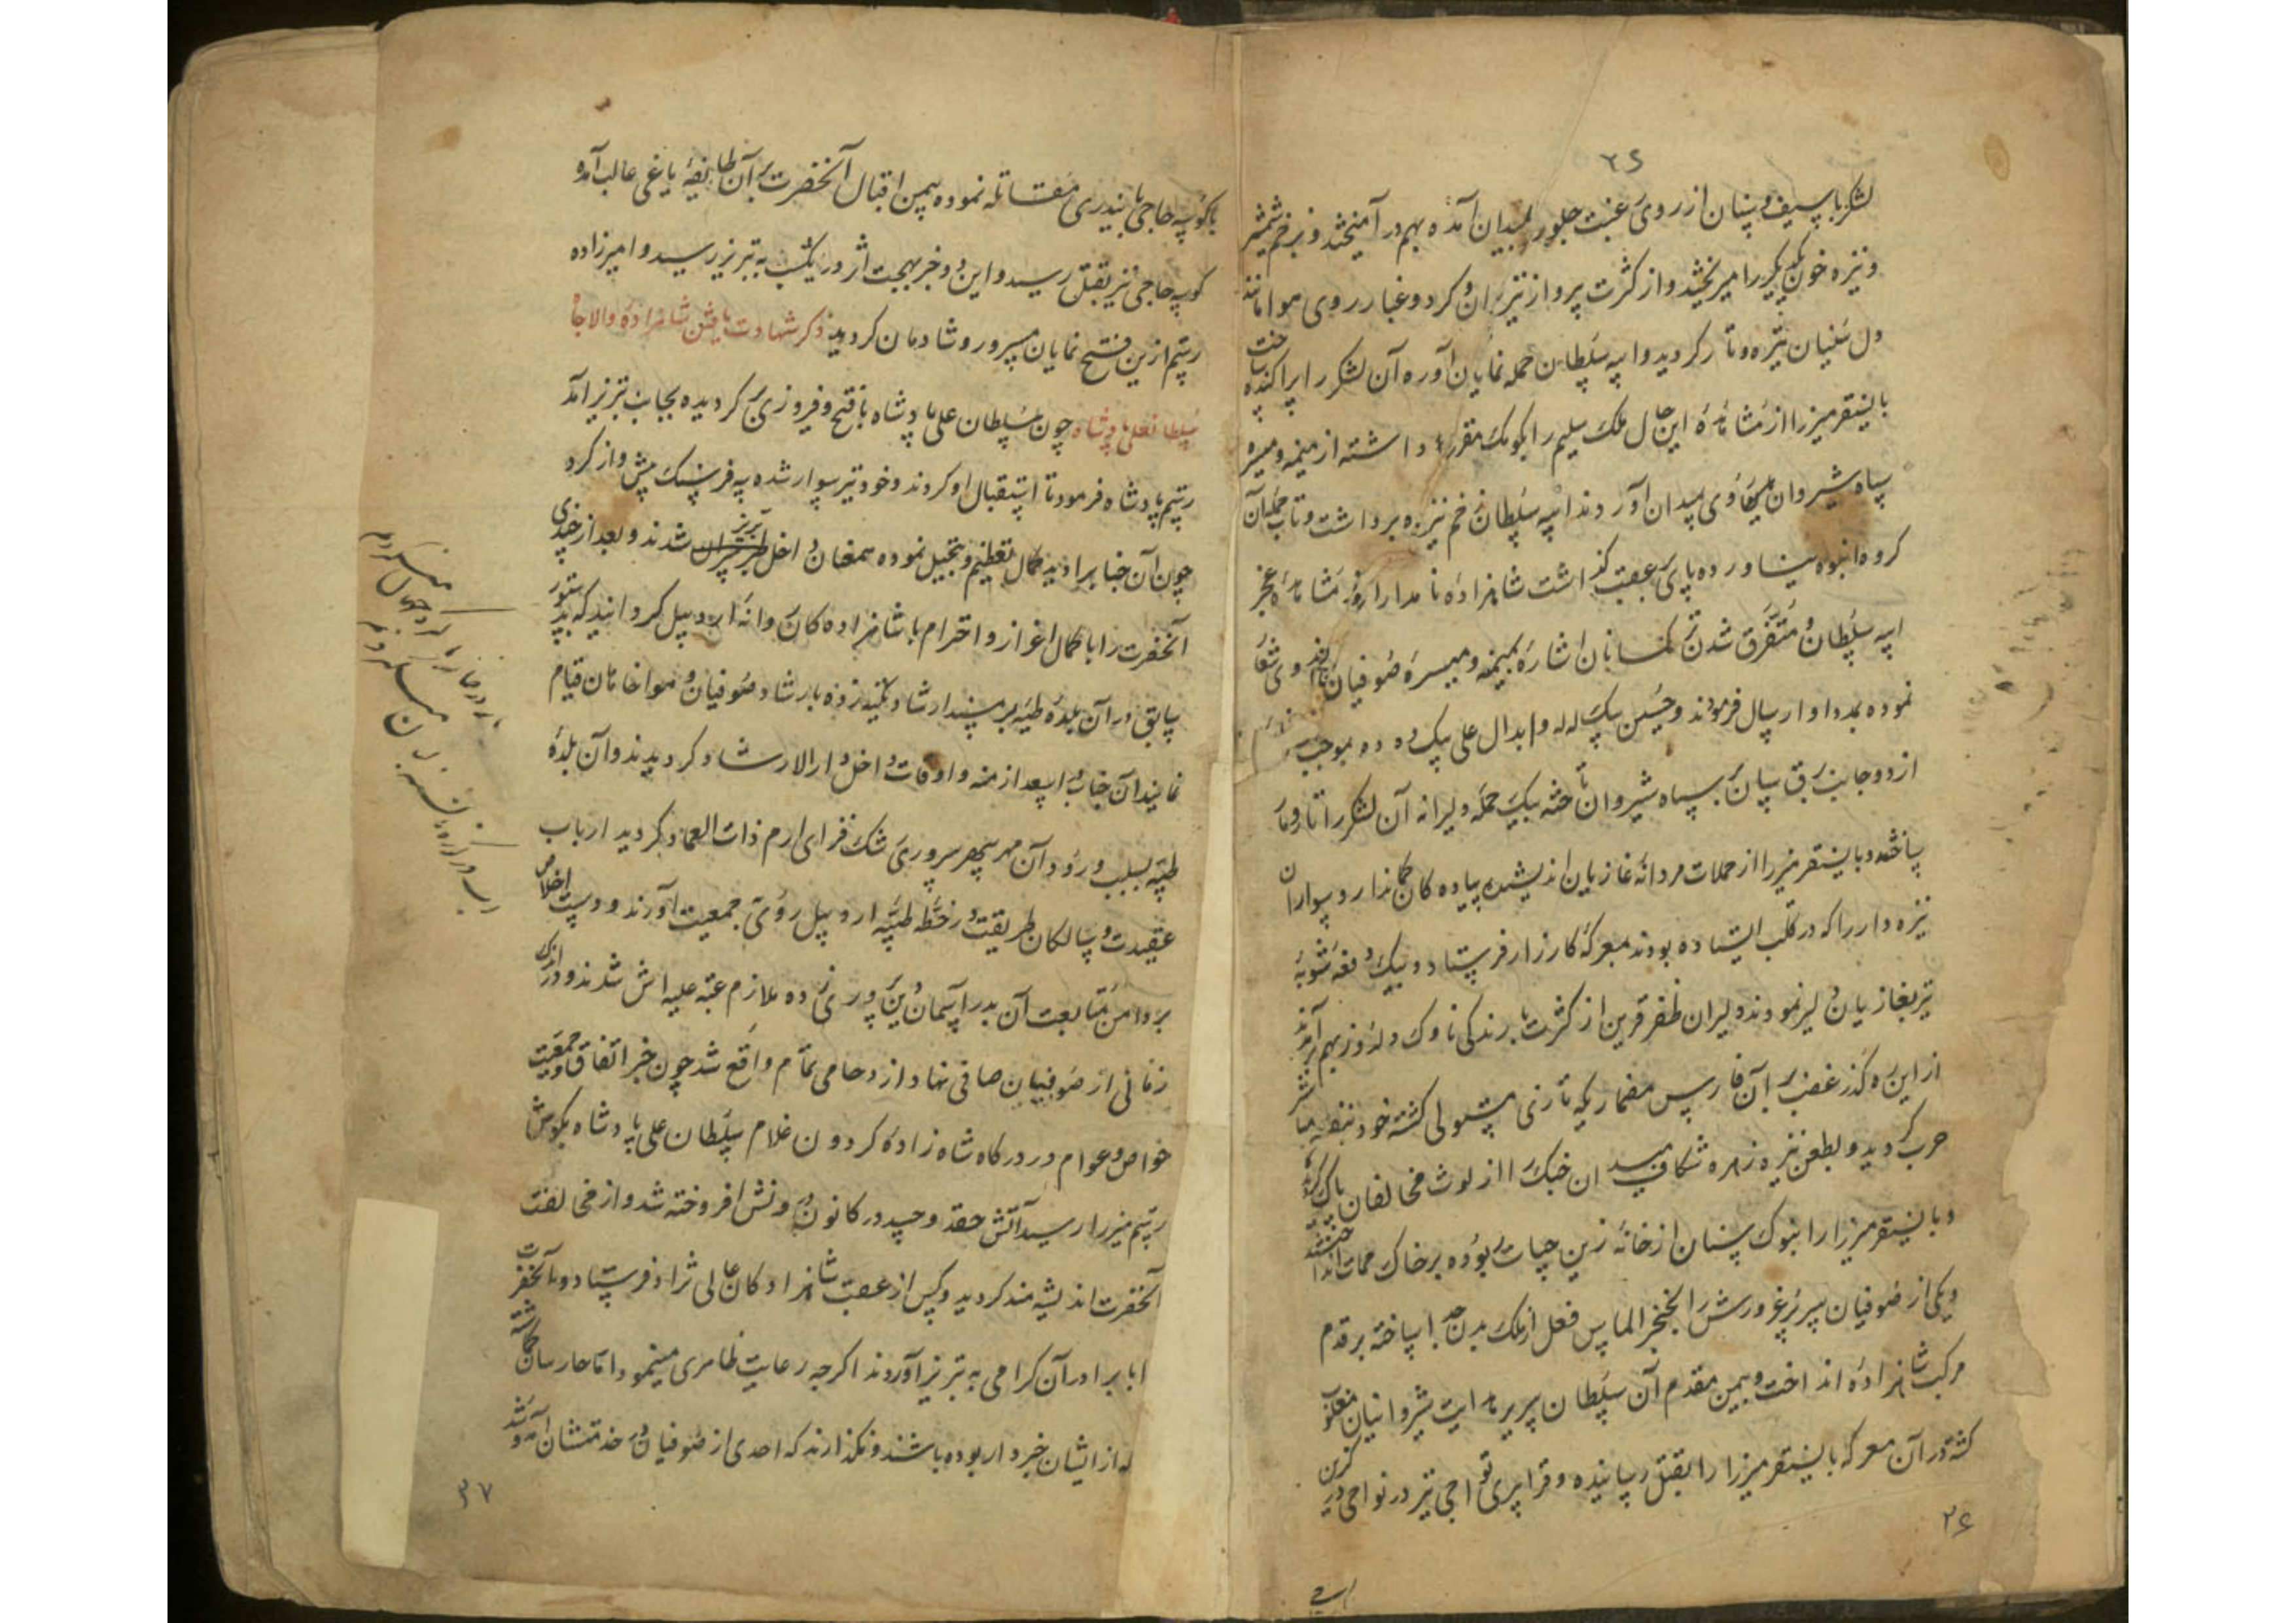 ۲۶
لشکر با سیف و سنان از روی غبت جلوریز بمیدان آمده بهم در آمیختند و بزخم شمشیر
و نیزه خون یکدیگر را میریختند و از کثرت پرواز تیر پران و کرد و غبار روی هوا مانند
دل سنیان تیره و تار کردید و ایبه سلطان حمله نمایان آورده آن لشکر را پراکنده ساخت
بایسنقر میرزا از مشاهدهٔ این حال ملک سلیم را بکومک مقرر داشته از میمنه و میسره
سپاه شیروان میدان آوردند ایبه سلطان زخم نیزه برداشت و تاب حمله آن
کروه انبوه نیاورده پای بعقب کذاشت شاهزادهٔ نامدار از مشاهدهٔ عجز
ایبه سلطان و متفرق شدن ترکمانان اشاره بمیمنه و میسرهٔ صوفیان
نموده بمدد او ارسال فرمودند و حسین بیک لله و ابدال علی بیک دده بموجب
از دو جانب برق سان بر سپاه شیروان تاخته بیک حمله دلیرانه آن لشکر را تار و مار
ساختند و بایسنقر میرزا از حملات مردانهٔ غازیان اندیشیده پیاده کان کماندار و سواران
نیزه دار را که در قلب ایستاده بودند بمعرکهٔ کارزار فرستاد و بیک دفعه شیبهٔ
تیر بغازیان دلیر نمودند دلیران ظفر قرین از کثرت بارندکی ناوک دلدوز بهم برآمدند
از این ره کذر غضب بر آن فارس مضمار یکه تازی مستولی کشته خود بنفسه مباشر
حرب کردید و بطعن نیزه زهره شکاف میدان جنک را از لوث مخالفان پاک کرده
و بایسنقر میرزا را بنوک سنان از خانهٔ زین حیات ربوده بر خاک ممات انداختند
و یکی از صوفیان سر پرغرورش را بخنجر الماس فعل از ملک بدن جدا ساخته بر قدم
مرکب شاهزاده انداخت و بیمن مقدم آن سلطان سریر هدایت شیروانیان مغلوب
کشته در آن معرکه بایسنقر میرزا را بقتل رسانیده و قرا پیری تواجی نیز در نواحی در کزین
۲۶
با کوسه حاجی بایندری مقاتله نموده بیمن اقبال آنحضرت بر آن طایفهٔ یاغی غالب آمده
کوسه حاجی نیز بقتل رسید و این دو خبر بهجت اثر در یکشب به تبریز رسید و امیرزاده
رستم ازین فتح نمایان مسرور و شادمان کردید ذکر شهادت یافتن شاهزادهٔ والاجاه
سلطانعلی پادشاه چون سلطان علی پادشاه با فتح و فیروزی کردیده بجانب تبریز آمد
رستم پادشاه فرمود تا استقبال او کردند و خود نیز سوار شده سه فرسنک پیش واز کرد
چون آن جناب را دید کمال تعظیم و تبجیل نموده همعنان داخل تبریز شدند و بعد از چندی
آنحضرت را با کمال اعزاز و احترام با شاهزاده کان روانهٔ اردبیل کردانید که بدستور
سابق در آن بلدهٔ طیبه بر مسند ارشاد تکیه زده بارشاد صوفیان و هواخاهان قیام
نمایند آن جناب در اسعد ازمنه و اوقات داخل دارالارشاد کردیدند و آن بلدهٔ
طیبه بسبب ورود آن مهر سپهر سروری رشک فزای ارم ذات العماد کردید ارباب
عقیدت و سالکان طریقت در خطهٔ طیبهٔ اردبیل روی جمعیت آوردند و دست اخلاص
بر دامن متابعت آن بدر آسمان دین پروری زده ملازم عتبه علیه اش شدند و در اندک
زمانی از صوفیان صافی نهاد ازدحامی تمام واقع شد چون خبر اتفاق و جمعیت
خواص و عوام در درکاه شاه زادهٔ کردون غلام سلطان علی پادشاه بکوش
رستم میرزا رسید آتش حقد و حسد در کانون درونش افروخته شد و از مخالفت
آنحضرت اندیشه مند کردید و کس از عقب شاهزادکان عالی نژاد فرستاد و آنحضرت
را با برادر آن کرامی به تبریز آوردند اکرچه رعایت ظاهری مینمود اما حارسان کماشته
که از ایشان خبردار بوده باشند و نکذارند که احدی از صوفیان در خدمتشان آمد و شد
۳۷